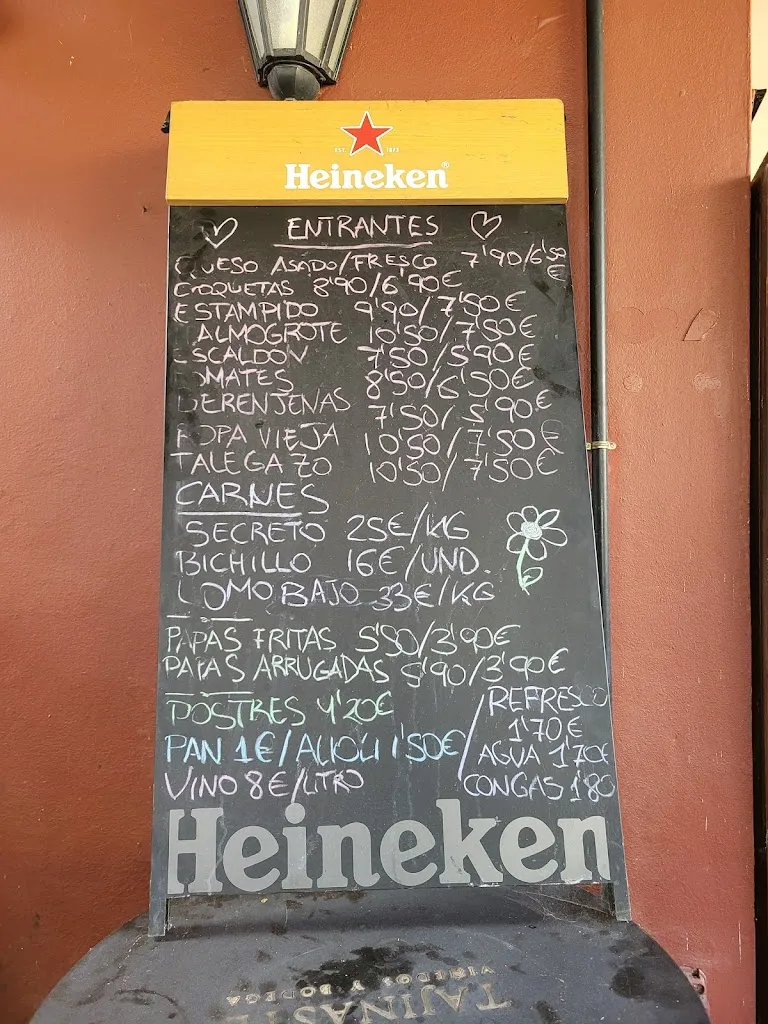 EST. 1873
Heineken®
ENTRANTES
QUESO ASADO/FRESCO 7'90/6'50€
CROQUETAS 8'90/6'90€
ESTAMPIDO 9'90/7'50€
ALMOGROTE 10'50/7'50€
ESCALDON 7'50/5'90€
OMATES 8'50/6'50€
BERENJENAS 7'50/5'90€
ROPA VIEJA 10'50/7'50€
TALEGAZO 10'50/7'50€
CARNES
SECRETO 25€/KG
BICHILLO 16€/UND.
LOMO BAJO 33€/KG
PAPAS FRITAS 5'50/3'90€
PAPAS ARRUGADAS 5'90/3'90€
POSTRES 4'20€
PAN 1€/ALIOLI 1'50€
VINO 8€/LITRO
REFRESCO
1'70€
AGUA 1'70€
CONGAS 1'80
Heineken
TAJINASTE
VIÑEDOS Y BODEGA